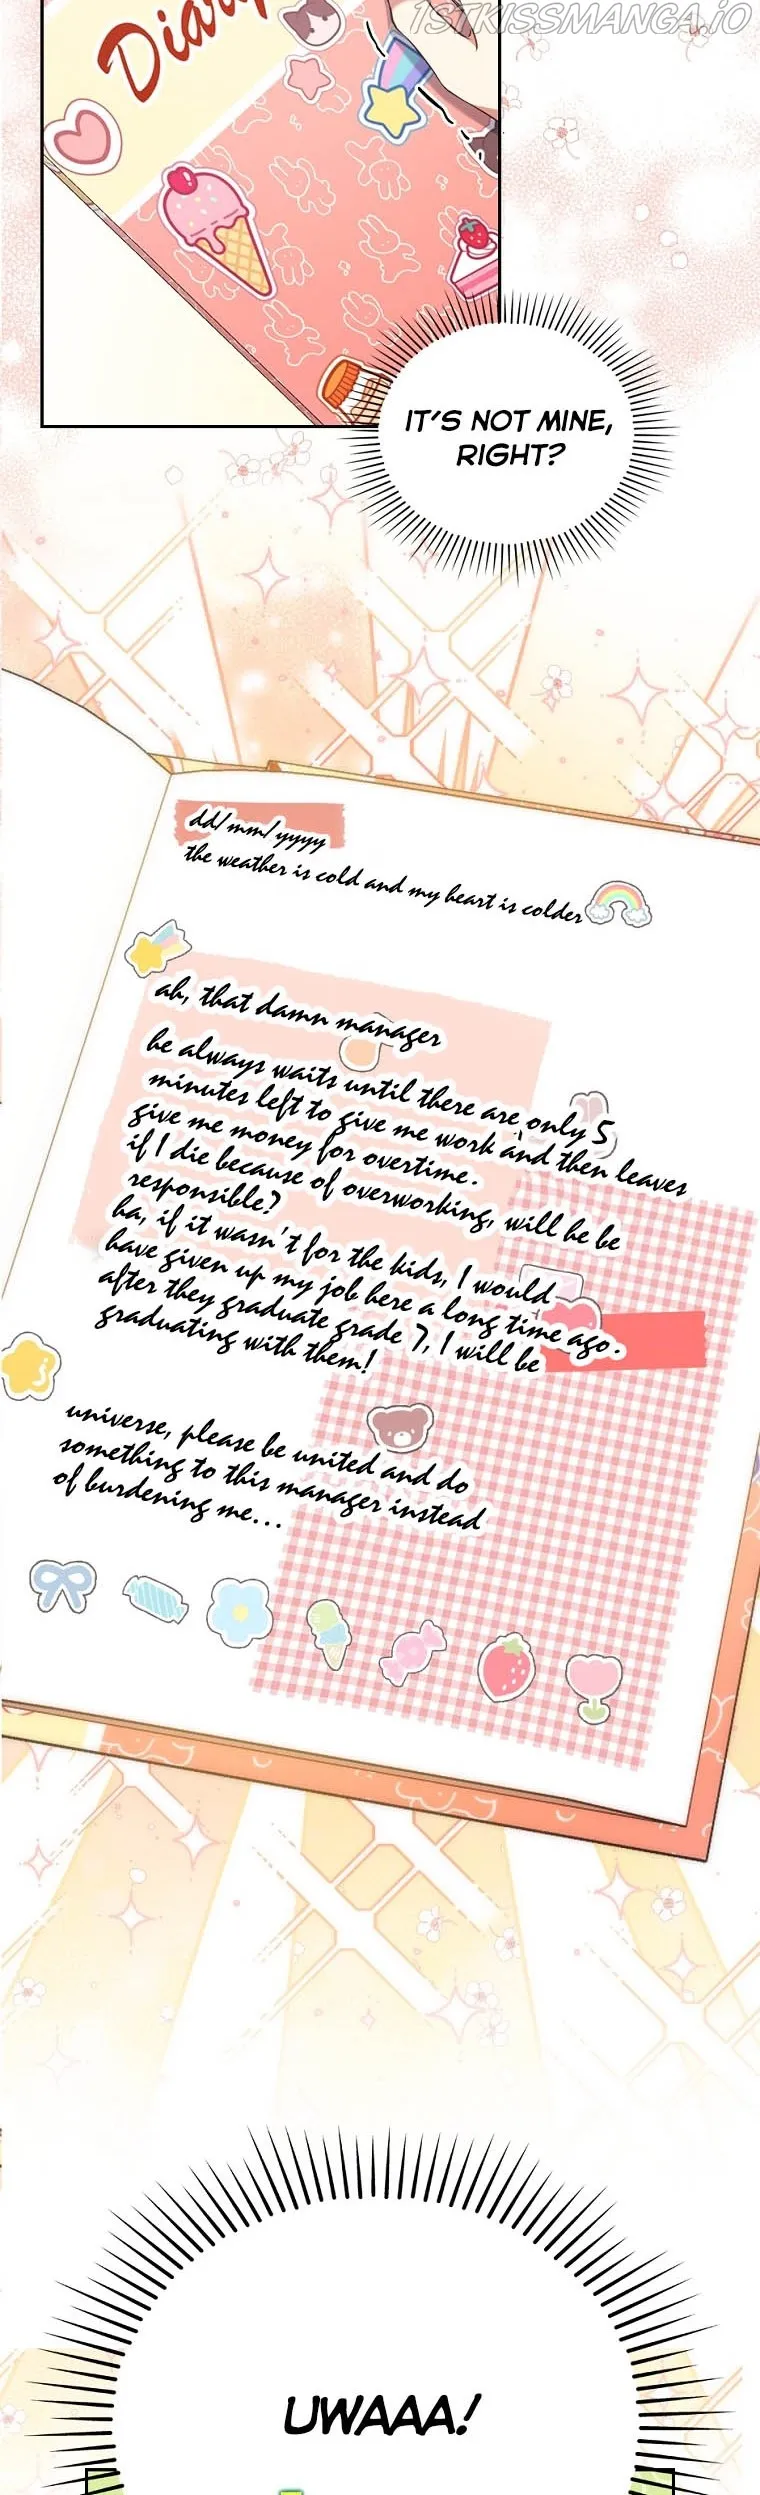 Diary
1STKISSMANGA.iO
IT'S NOT MINE,
RIGHT?
dd/mm/yyyy
the weather is cold and my heart is colder
ah, that damn manager
he always waits until there are only 5
minutes left to give me work and then leaves
give me money for overtime.
if I die because of overworking, will he be
responsible?
ha, if it wasn't for the kids, I would
have given up my job here a long time ago.
after they graduate grade 7, I will be
graduating with them!
universe, please be united and do
something to this manager instead
of burdening me...
UWAAA!